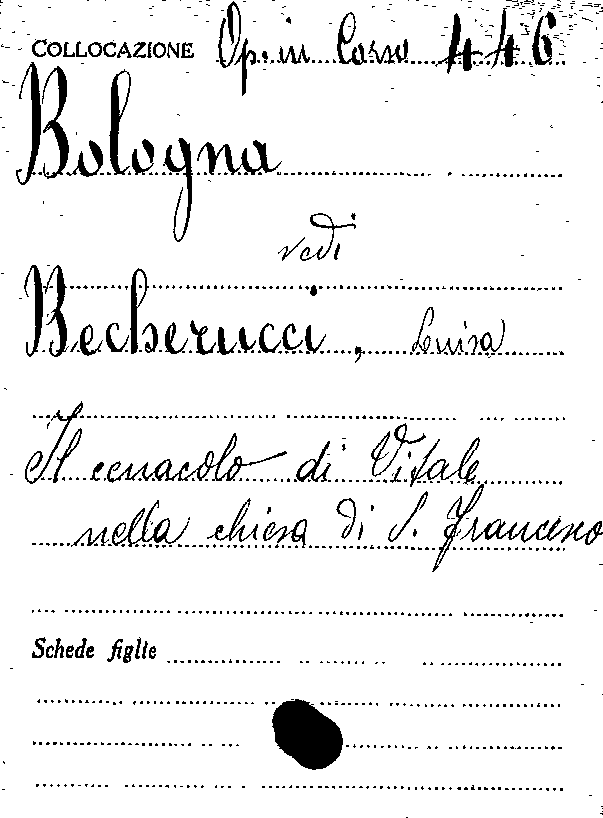 COLLOCAZIONE Op. in Corso 446
Bologna
vedi
Becherucci, Luisa
Il cenacolo di Vitale
nella chiesa di S. Francesco
Schede figlie